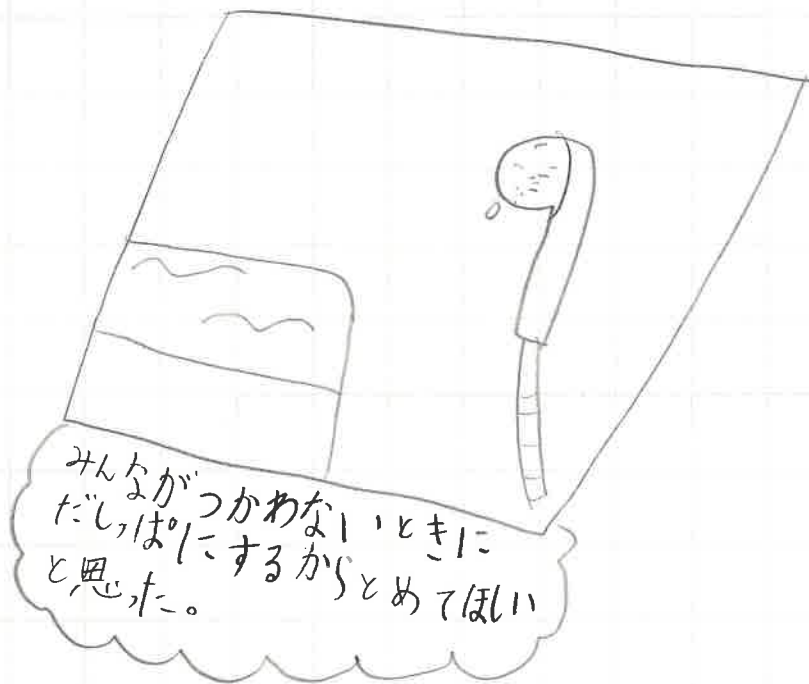 みんながつかわないときに
だしっぱにするからとめてほしい
と思った。